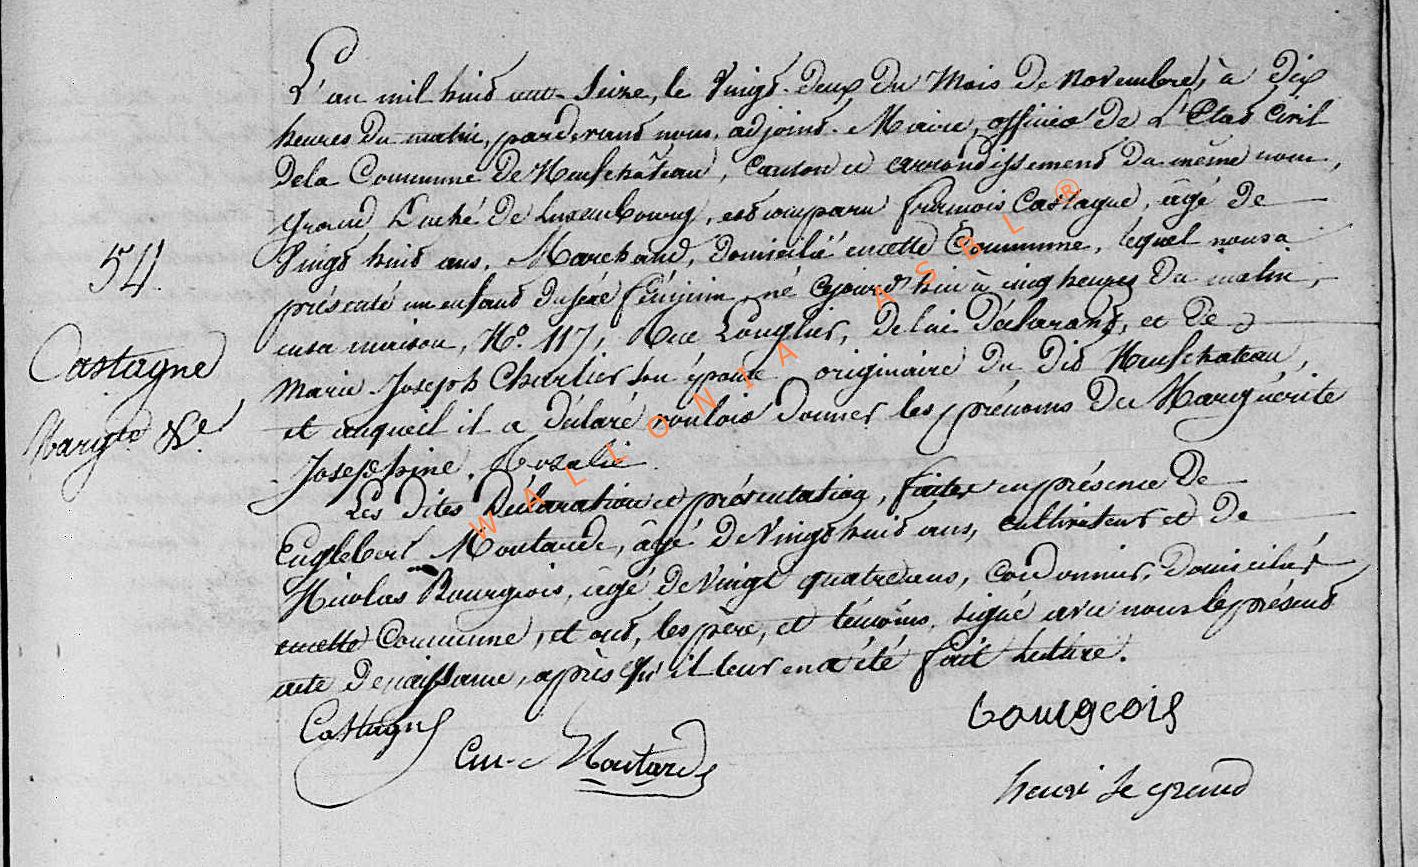 L'an mil huit cent Seize, le Vingt-deux du Mois de Novembre, à dix
heures du matin, pardevant nous, adjoint-Maire, officier de L'Etat Civil
de la Commune de Neufchâteau, canton et arrondissement du même nom,
Grand Duché de Luxembourg, est comparu françois Castagne, âgé de
Vingt huit ans, Marchand, domicilié en cette Commune, lequel nous a
présenté un enfant du sexe féminin, né ajourd'hui à cinq heures du matin,
54.
en sa maison, No. 117, Rue Longlier, de lui déclarant, et de
Castagne
Marie-Joseph Charlier son épouse originaire du dit Neufchateau,
et auquel il a déclaré vouloir donner les prénoms de Marguérite
Margte &e.
Josephine, Rosalie.
Les dites Déclaration et présentation, faites en présence de
Englebert Moutarde, âgé de Vingt huit ans, cultivateur et de
Nicolas Bourgeois, âgé de Vingt quatre ans, Cordonnier, domiciliés
en cette Commune, et ont, les père, et témoins, signé avec nous le présent
acte de naissance, après qu'il leur en a été fait lecture.
Castagne
bourgeois
Moutarde
henri le grand
WALLONIA ASBL ®